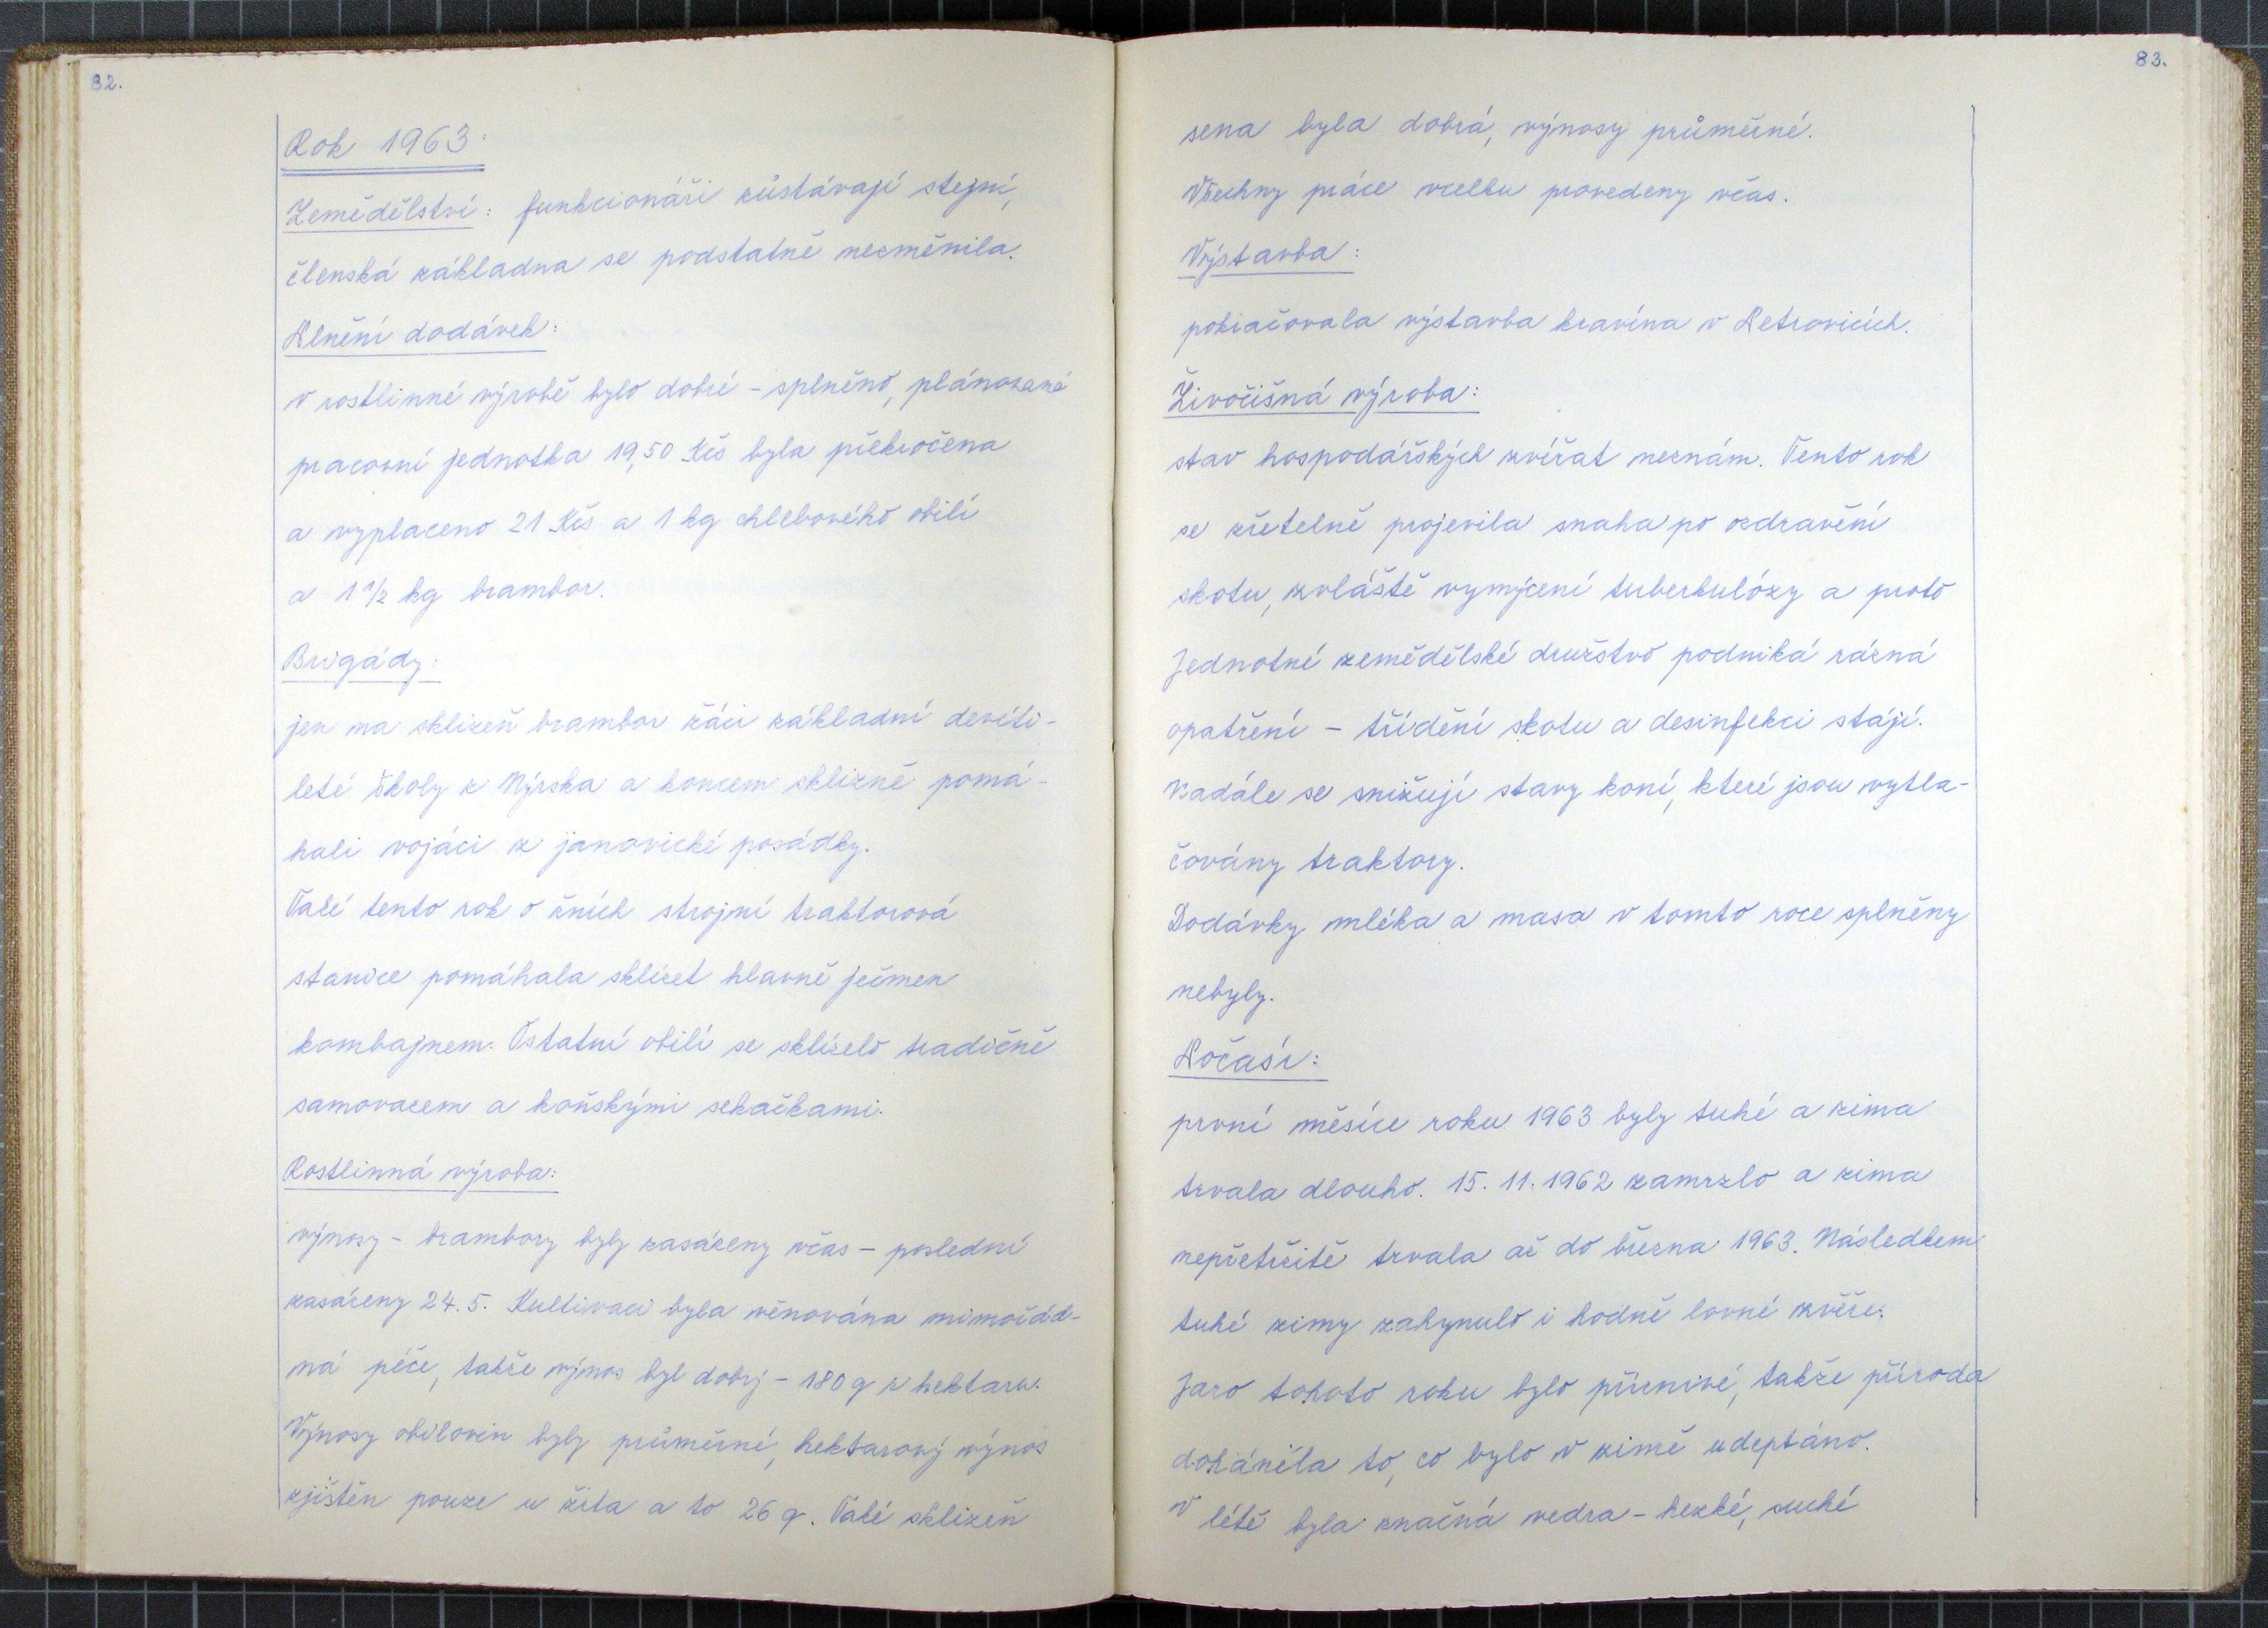 82.
Rok 1963:
Zemědělství: funkcionáři zůstávají stejní,
členská základna se podstatně nezměnila.
Plnění dodávek:
v rostlinné výrobě bylo dobré - splněno, plánovaná
pracovní jednotka 19,50 Kčs byla překročena
a vyplaceno 21 Kčs a 1 kg chlebového obilí
a 1 1/2 kg brambor.
Brigády:
jen na sklizeň brambor žáci základní devíti-
leté školy z Nýrska a koncem sklizně pomá-
hali vojáci z janovické posádky.
Také tento rok o žních strojní traktorová
stanice pomáhala sklízet hlavně ječmen
kombajnem. Ostatní obilí se sklízelo tradičně
samovazem a koňskými sekačkami.
Rostlinná výroba:
výnosy - brambory byly zasázeny včas - poslední
zasázeny 24.5. Kultivaci byla věnována mimořád-
ná péče, takže výnos byl dobrý - 180 q z hektaru.
Výnosy obilovin byly průměrné, hektarový výnos
zjištěn pouze u žita a to 26 q. Také sklizeň
83.
sena byla dobrá, výnosy průměrné.
Všechny práce vcelku provedeny včas.
Výstavba:
pokračovala výstavba kravína v Petrovicích.
Živočišná výroba:
stav hospodářských zvířat neznám. Tento rok
se zřetelně projevila snaha po ozdravění
skotu, zvláště vymýcení tuberkulózy a proto
Jednotné zemědělské družstvo podniká rázná
opatření - třídění skotu a desinfekci stájí.
Nadále se snižují stavy koní, které jsou vytla-
čovány traktory.
Dodávky mléka a masa v tomto roce splněny
nebyly.
Počasí:
první měsíce roku 1963 byly tuhé a zima
trvala dlouho. 15. 11. 1962 zamrzlo a zima
nepřetržitě trvala až do března 1963. Následkem
tuhé zimy zahynulo i hodně lovné zvěře.
Jaro tohoto roku bylo příznivé, takže příroda
doháněla to, co bylo v zimě udeptáno.
V létě byla značná vedra - hezké, suché